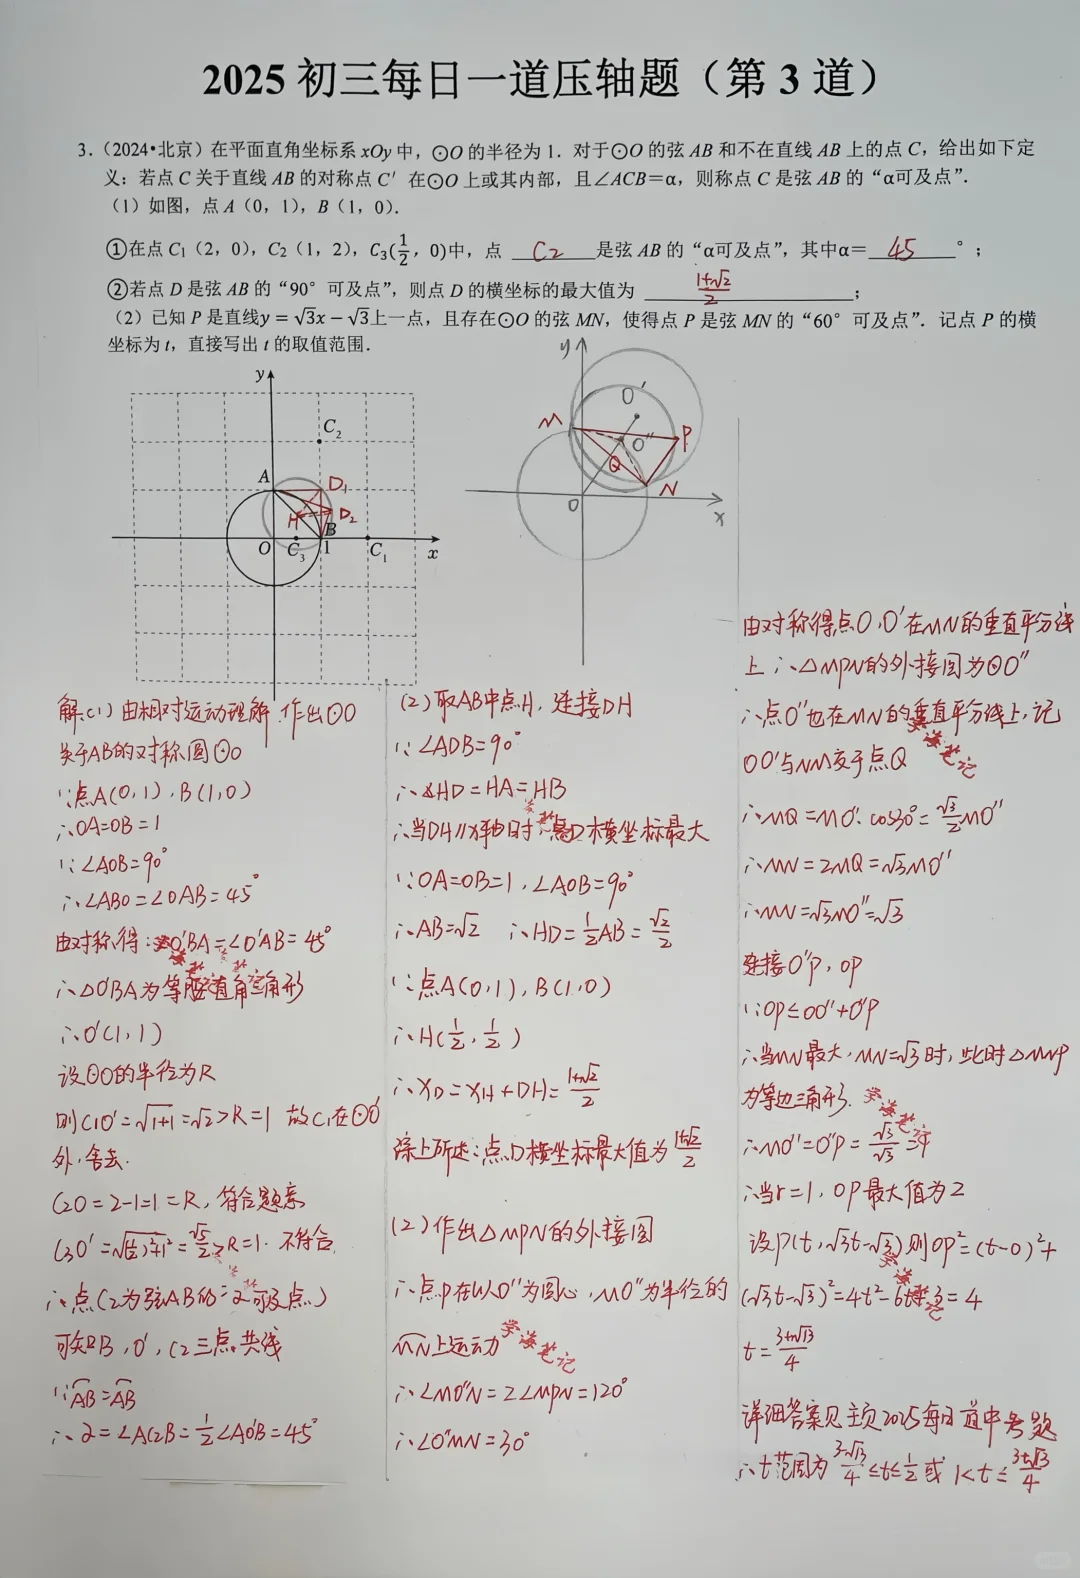 2025 初三每日一道压轴题（第 3 道）
3.（2024•北京）在平面直角坐标系 xOy 中，⊙O 的半径为 1．对于⊙O 的弦 AB 和不在直线 AB 上的点 C，给出如下定
义：若点 C 关于直线 AB 的对称点 C′ 在⊙O 上或其内部，且∠ACB＝α，则称点 C 是弦 AB 的“α可及点”．
（1）如图，点 A（0，1），B（1，0）．
①在点 C₁（2，0），C₂（1，2），C₃(1/2，0)中，点 C₂ 是弦 AB 的“α可及点”，其中α＝ 45 °；
②若点 D 是弦 AB 的“90°可及点”，则点 D 的横坐标的最大值为 (1+√2)/2 ；
（2）已知 P 是直线y＝√3x－√3上一点，且存在⊙O 的弦 MN，使得点 P 是弦 MN 的“60°可及点”．记点 P 的横
坐标为 t，直接写出 t 的取值范围．
y
C₂
A
D₁
H
D₂
B
O
C₃
1
C₁
x
y
O′
M
O″
P
Q
N
O
x
解:(1) 由相对运动理解,作出⊙O
关于AB的对称圆⊙O
∵点A(0,1),B(1,0)
∴OA=OB=1
∵∠AOB=90°
∴∠ABO=∠OAB=45°
由对称得:∠O′BA=∠O′AB=45°
∴△O′BA为等腰直角三角形
∴O′(1,1)
设⊙O的半径为R
则C₁O′=√(1+1)=√2>R=1 故C₁在⊙O′
外,舍去.
C₂O=2-1=1=R,符合题意
C₃O′=√((1/2)²+1²)=√5/2>R=1.不符合
∴点C₂为弦AB的“α可及点”
可知B,O′,C₂三点共线
∵⌒AB=⌒AB
∴α=∠AC₂B=1/2∠AO′B=45°
(2)取AB中点H,连接DH
∵∠ADB=90°
∴HD=HA=HB
∴当DH∥x轴时,点D横坐标最大
∵OA=OB=1,∠AOB=90°
∴AB=√2 ∴HD=1/2AB=√2/2
∵点A(0,1),B(1,0)
∴H(1/2,1/2)
∴x_D=x_H+DH=(1+√2)/2
综上所述:点D横坐标最大值为(1+√2)/2
(2)作出△MPN的外接圆
∴点P在以O″为圆心,MO″为半径的
⌒MN上运动
学海笔记
∴∠MO″N=2∠MPN=120°
∴∠O″MN=30°
由对称得点O,O′在MN的垂直平分线
上 ∴△MPN的外接圆为⊙O″
∴点O″也在MN的垂直平分线上,记
OO′与NM交于点Q
学海笔记
∴MQ=MO″·cos30°=√3/2MO″
∴MN=2MQ=√3MO″
∴MN=√3MO″=√3
连接O′P,OP
∵OP≤OO″+O″P
∴当MN最大,MN=√3时,此时△MNP
为等边三角形.
学海笔记
∴MO″=O″P=√3/√3=1
∴当r=1,OP最大值为2
设P(t,√3t-√3)则OP²=(t-0)²+
(√3t-√3)²=4t²-6t+3=4
学海笔记
t=(3±√13)/4
详细答案见主页2025每日一道中考题
∴t范围为(3-√13)/4≤t≤1/2或1<t≤(3+√13)/4